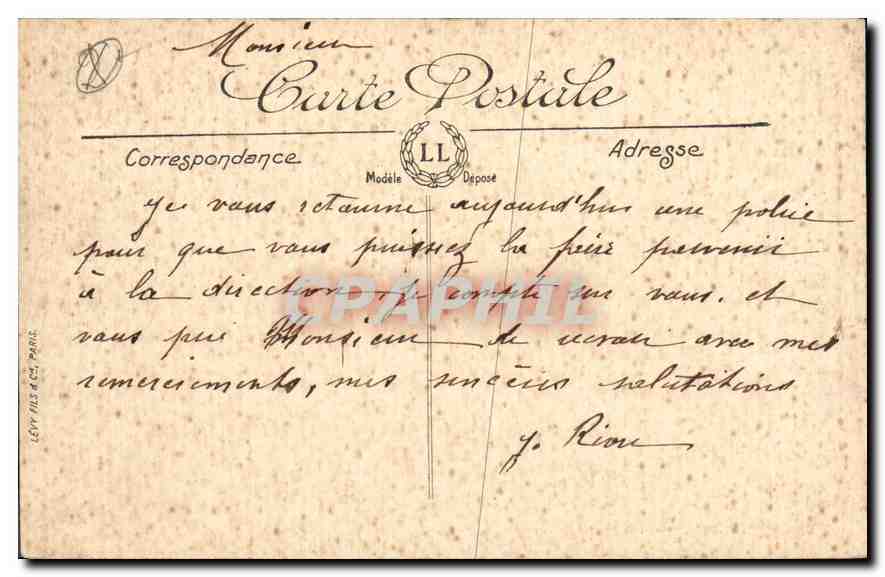 Monsieur
Carte Postale
Correspondance
LL
Modèle Déposé
Adresse
Je vous retourne aujourd'hui une police
pour que vous puissiez la faire parvenir
à la direction je compte sur vous. et
vous prie Monsieur de avec mes
remerciements, mes sincères salutations
y. Riou
LÉVY FILS & Cie, PARIS.
CPAPHIL